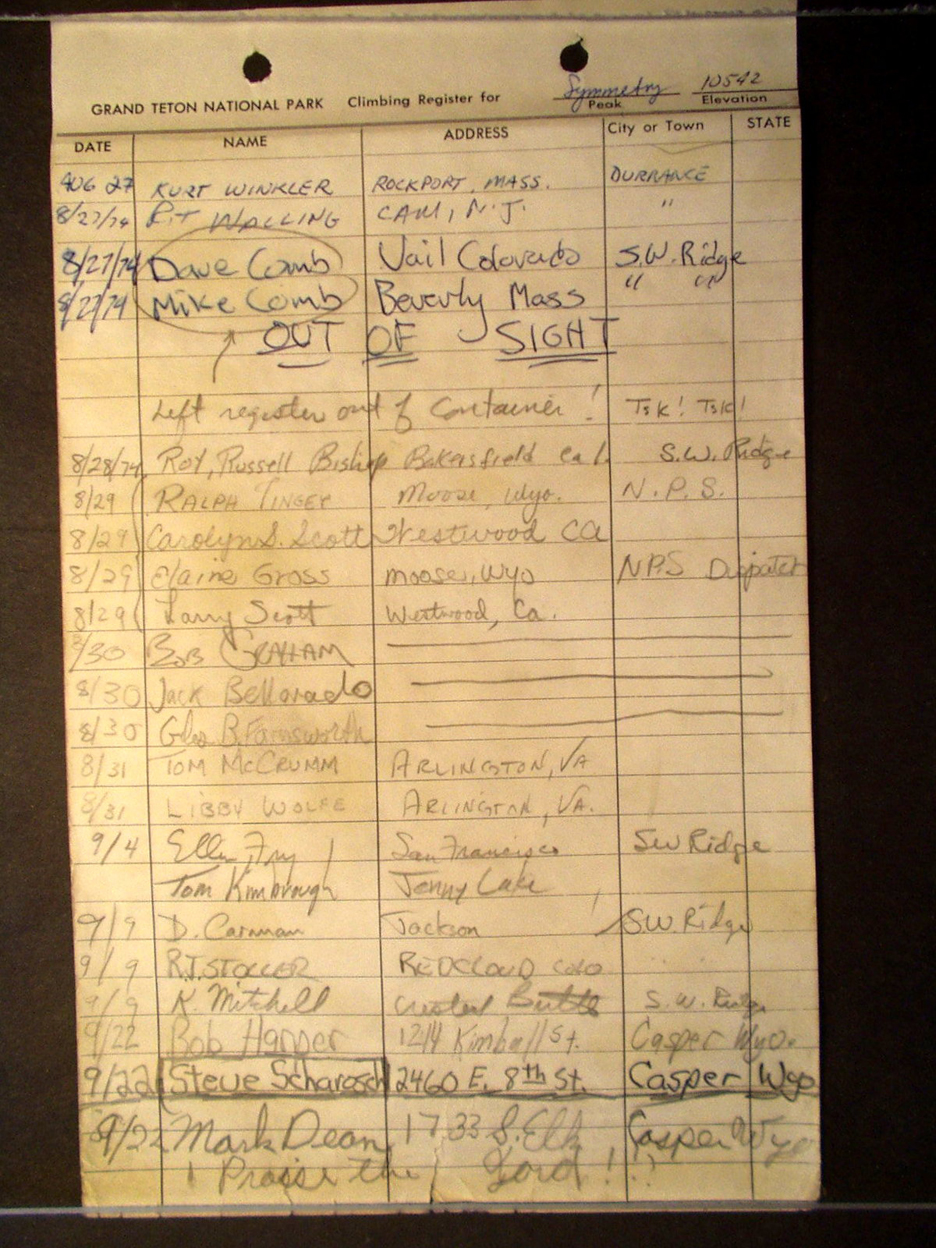 Symmetry 10542
GRAND TETON NATIONAL PARK Climbing Register for Peak Elevation
DATE NAME ADDRESS City or Town STATE
AUG 27 KURT WINKLER ROCKPORT, MASS. DURRANCE
8/27/74 WALLING N.J. "
8/27/74 Dave Comb Vail Colorado S.W. Ridge
8/27/74 Mike Comb Beverly Mass " "
OUT OF SIGHT
Left register out of Container! Tsk! Tsk!
8/28/74 Roy, Russell Bishop Bakersfield Cal. S.W. Ridge
8/29 RALPH TINGEY Moose, Wyo. N.P.S.
8/29 Carolyn S. Scott Westwood CA
8/29 Elaine Gross moose, Wyo NPS Dispatch
8/29 Larry Scott Westwood, Ca.
8/30 BOB GRAHAM
8/30 Jack Bellorado
8/30 B. Farnsworth
8/31 TOM McCRUMM ARLINGTON, VA
8/31 LIBBY WOLFE ARLINGTON, VA.
9/4 Ellen Fry San Francisco SW Ridge
Tom Kimbrough Jenny Lake
9/9 D. Carman Jackson S.W. Ridge
9/9 R.J. STOLLER REDCLOUD COLO
9/9 K. Mitchell Crested Butte S.W. Ridge
9/22 Bob Harper 1214 Kimball St. Casper Wyo.
9/22 Steve Scharosch 2460 E. 8th St. Casper Wyo
9/22 Mark Dean 1733 S. Elk Casper Wyo
Praise the Lord!!!